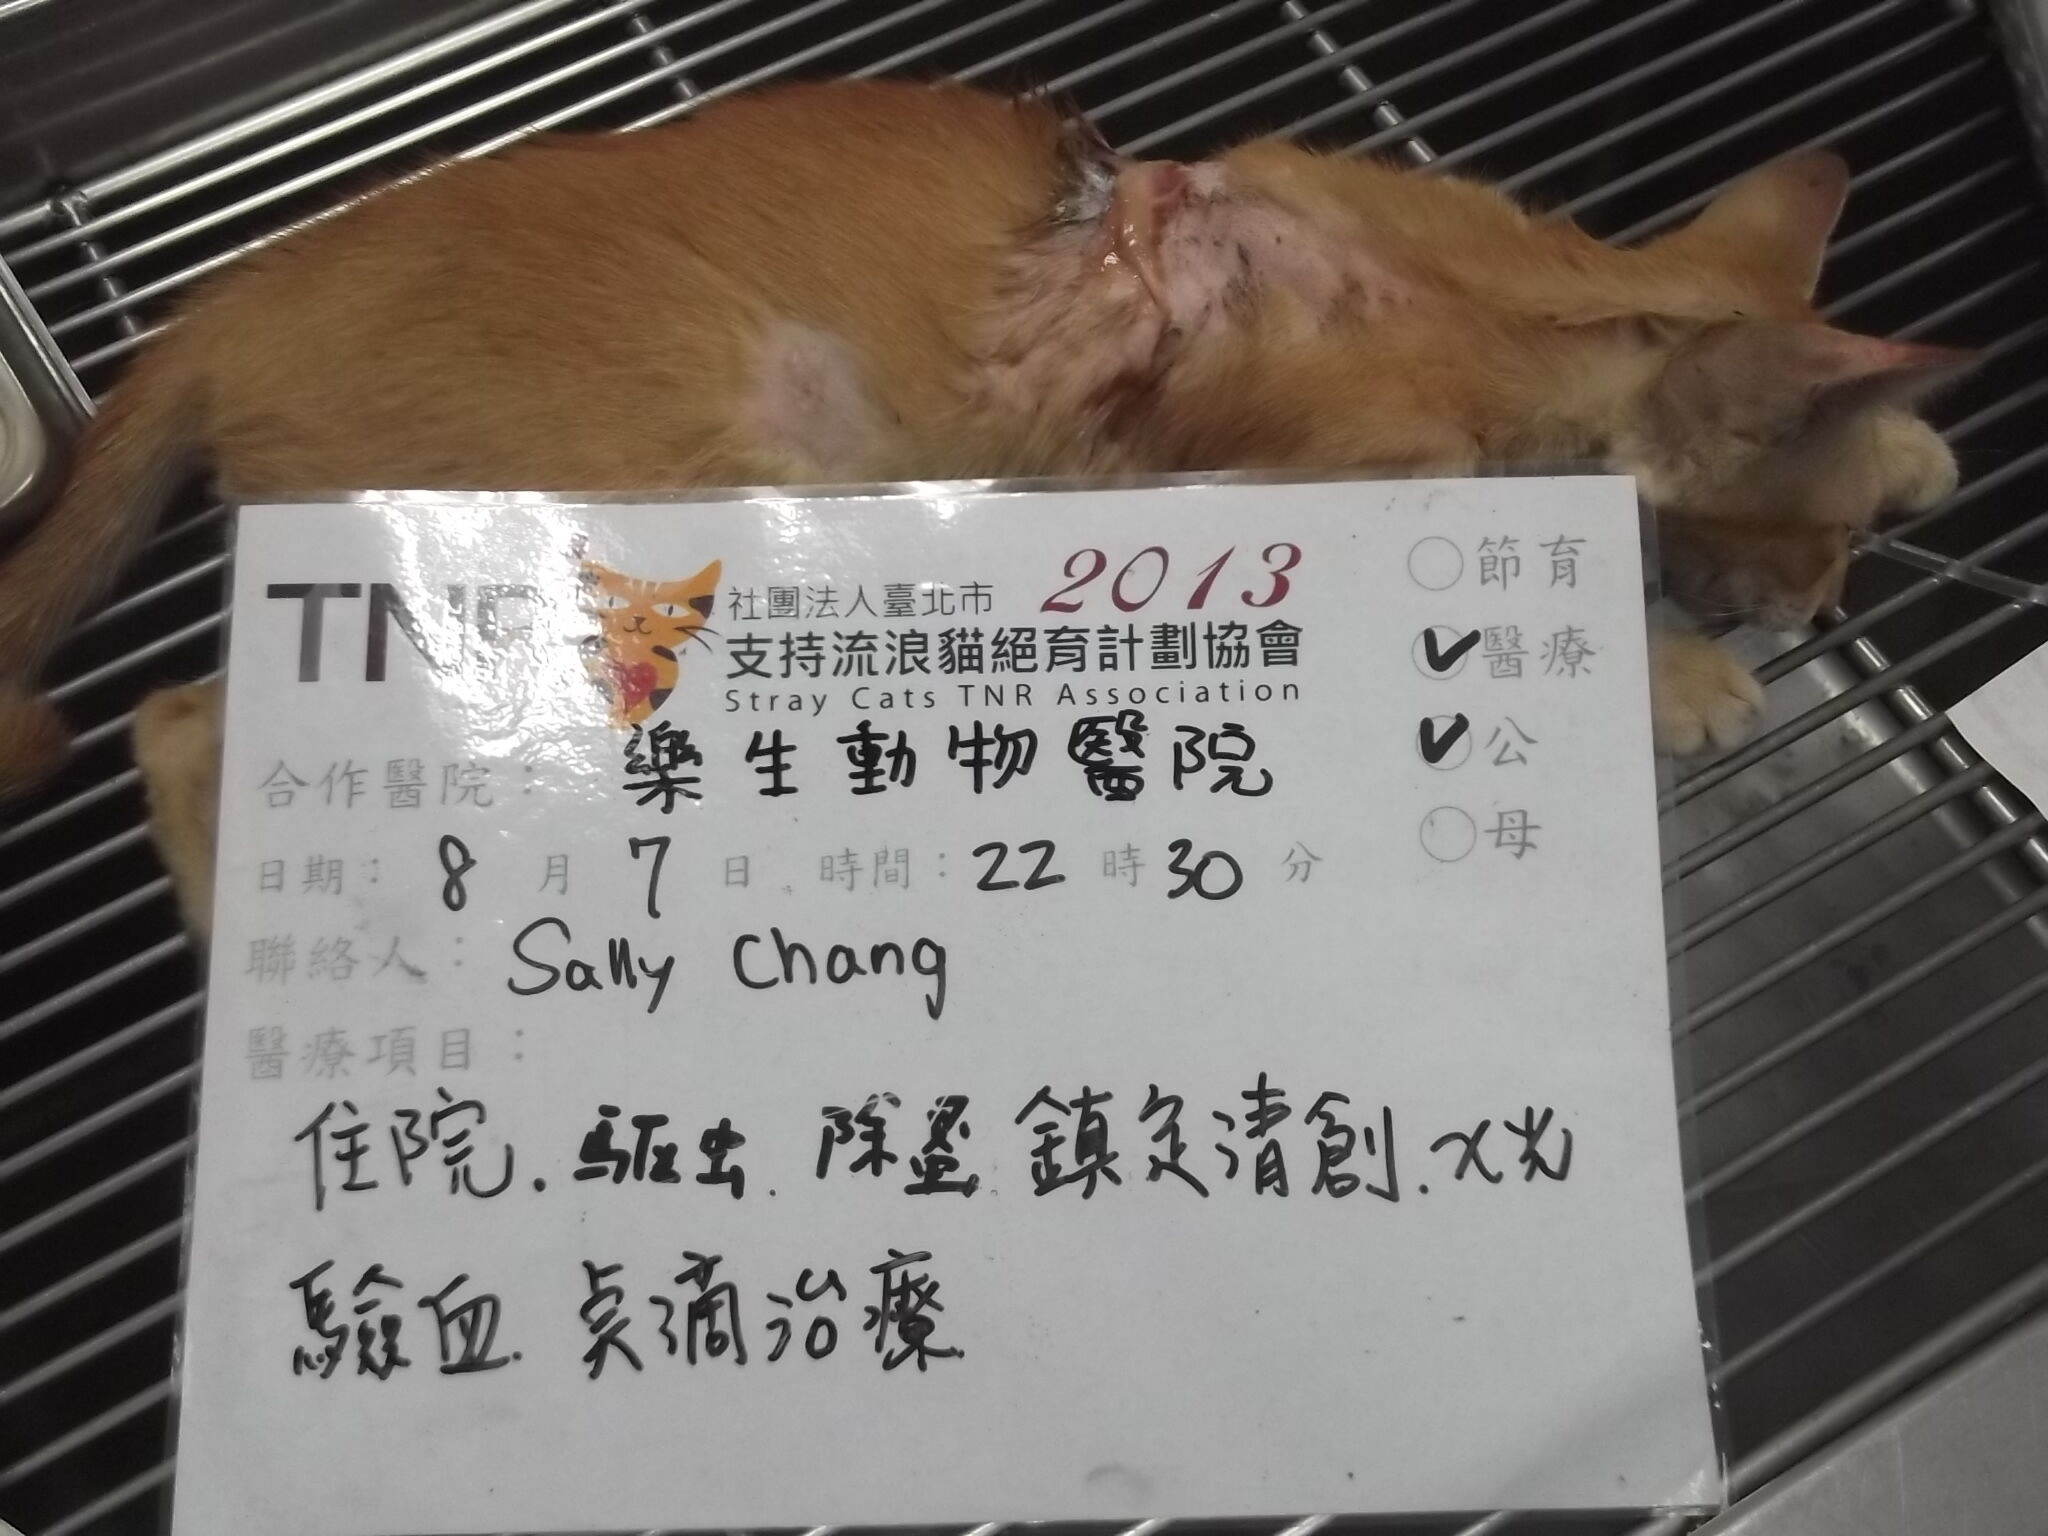 TNR
社團法人臺北市 2013
支持流浪貓絕育計劃協會
Stray Cats TNR Association
節育
醫療
公
母
合作醫院：樂生動物醫院
日期：8月7日 時間：22時30分
聯絡人：Sally Chang
醫療項目：
住院．驅虫．除蚤 鎮定清創．X光
驗血．点滴治療